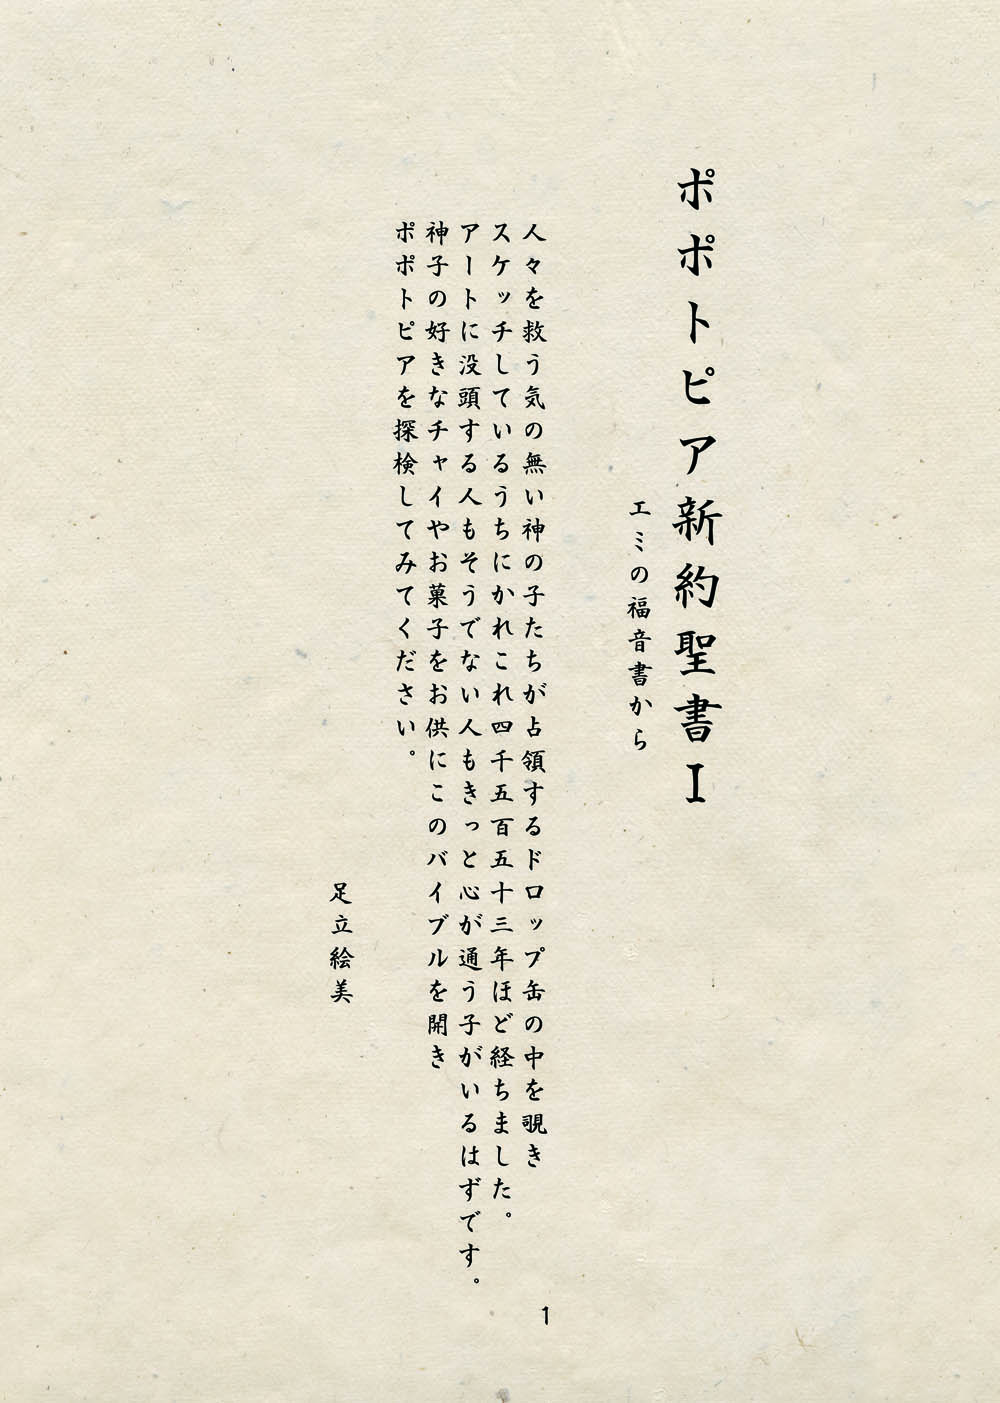 ポポトピア新約聖書I
エミの福音書から
人々を救う気の無い神の子たちが占領するドロップ缶の中を覗き
スケッチしているうちにかれこれ四千五百五十三年ほど経ちました。
アートに没頭する人もそうでない人もきっと心が通う子がいるはずです。
神子の好きなチャイやお菓子をお供にこのバイブルを開き
ポポトピアを探検してみてください。
足立絵美
1